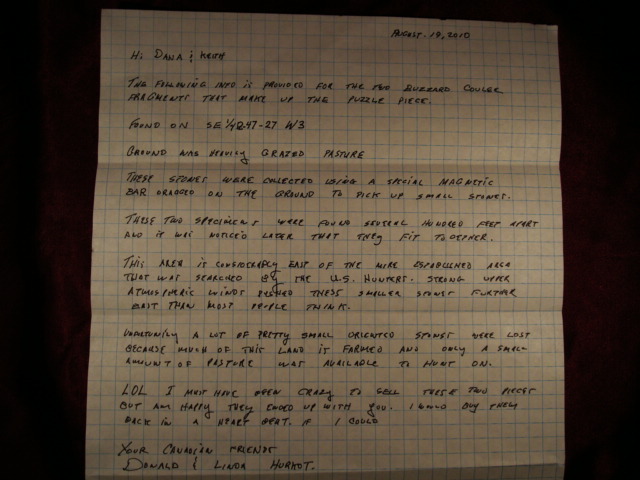 AUGUST. 19, 2010
Hi DANA & KEITH
THE FOLLOWING INFO IS PROVIDED FOR THE TWO BUZZARD COULEE
FRAGMENTS THAT MAKE UP THE PUZZLE PIECE.
FOUND ON SE 47-27 W3
GROUND WAS HEAVILY GRAZED PASTURE
THESE STONES WERE COLLECTED USING A SPECIAL MAGNETIC
BAR DRAGGED ON THE GROUND TO PICK UP SMALL STONES.
THESE TWO SPECIMENS WERE FOUND SEVERAL HUNDRED FEET APART
AND IT WAS NOTICED LATER THAT THEY FIT TOGETHER.
THIS AREA IS CONSIDERABLY EAST OF THE MORE ESTABLISHED AREA
THAT WAS SEARCHED BY THE U.S. HUNTERS. STRONG UPPER
ATMOSPHERIC WINDS PUSHED THESE SMALLER STONES FURTHER
EAST THAN MOST PEOPLE THINK.
A LOT OF PRETTY SMALL ORIENTED STONES WERE LOST
BECAUSE MUCH OF THIS LAND IS FARMED AND ONLY A SMALL
AMOUNT OF PASTURE WAS AVAILABLE TO HUNT ON.
LOL I MUST HAVE BEEN CRAZY TO SELL THESE TWO PIECES
BUT AM HAPPY THEY ENDED UP WITH YOU. I WOULD BUY THEM
BACK IN A HEART BEAT. IF I COULD
YOUR CANADIAN FRIENDS
DONALD & LINDA HURKOT.